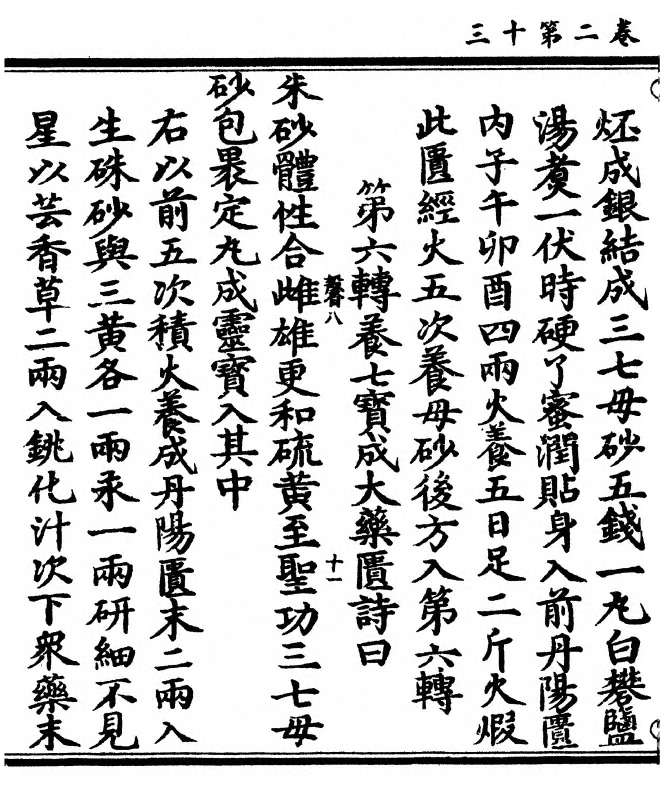 卷二第十三
炢成銀結成三七毋砂五錢一丸白礬鹽
湯煑一伏時硬了蜜潤貼身入前丹陽匱
内子午卯酉四兩火養五日足二斤火煆
此匱經火五次養母砂後方入第六轉
第六轉養七寶成大藥匱詩曰
馨八
十一
朱砂體性合雌雄更和硫黃至聖功三七毋
砂包褁定丸成靈寶入其中
右以前五次積火養成丹陽匱末二兩入
生硃砂與三黃各一兩汞一兩研細不見
星以芸香草二兩入銚化汁次下衆藥末